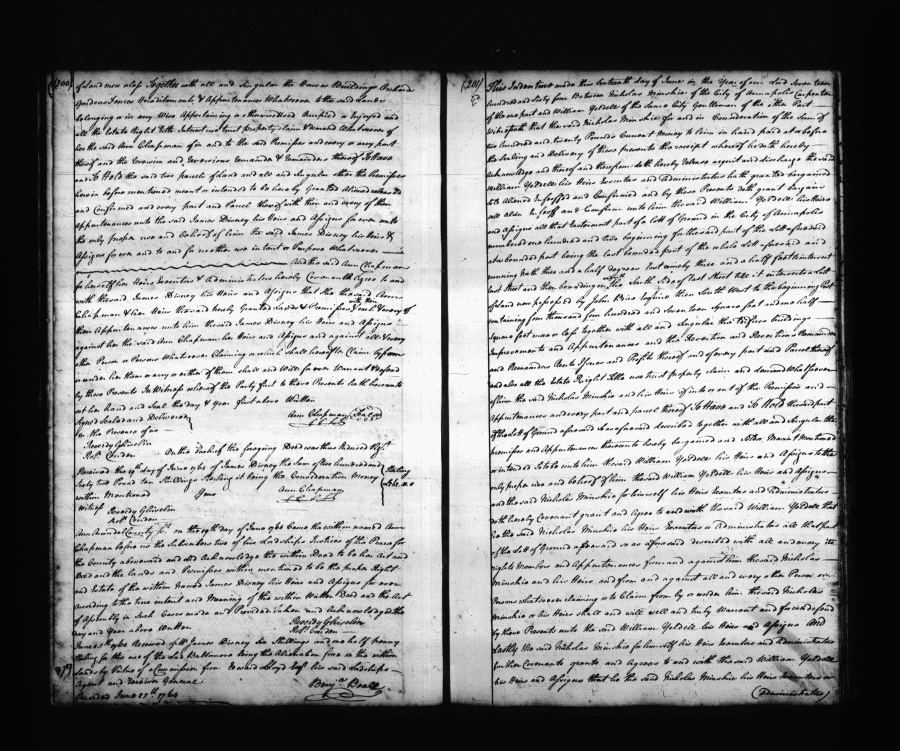 (200)
of Land more or less Together with all and Singular the Houses Buildings Orchards
Gardens Fences Hereditaments & Appurtenances Whatsoever to the said Lands
belonging or in any Wise Appertaining or otherwise used Occupied or Enjoyed and
all the Estate Right Title Interest use trust property claim & demand Whatsoever of
her the said Ann Chapman of in and to the said Premises and every or any part
thereof and the Reversion and Reversions remainder & Remainders thereof To Have
and To Hold the said two parcels of Land and all and Singular other the Premises
herein before mentioned meant or intended to be hereby Granted Aliened
and Confirmed and every part and Parcel thereof with their and every of their
Appurtenances unto the said James Disney his Heirs and Assigns for ever unto
the only proper use and behoof of him the said James Disney his Heirs &
Assigns for ever and to and for no other use intent or Purpose Whatsoever
And the said Ann Chapman
for herself her Heirs Executors & Administrators hereby Covenant & Agree to and
with the said James Disney his Heirs and Assigns that she the said Ann
Chapman & her Heirs the said hereby Granted Lands & Premises with their & each & every of
their Appurtenances unto him the said James Disney his Heirs and Assigns
against her the said Ann Chapman her Heirs and Assigns and against all & every
other Person or Persons Whatsoever Claiming or which shall hereafter Claim by from
or under her them or any or either of them shall and Will for ever Warrant & defend
by these Presents In Witness whereof the Party first to these Presents hath hereunto
set her hand and Seal the day & Year first above Written
Signed Sealed and Delivered
in the Presence of us
Ann Chapman Seal
Reverdy Ghiselin
Robt. Couden
On the Back of the foregoing Deed was thus Endorsed Vizt.
Received the 19th day of June 1764 of James Disney the Sum of two hundred and
Sixty two Pounds ten Shillings Sterling it being the Consideration Money
within Mentioned
Sterling
Ann Chapman
Witness
Reverdy Ghiselin
Robt. Couden
Ann Arundel County Sct. on the 19th day of June 1764 Came the within named Ann
Chapman before us the Subscribers two of his Lordships Justices of the Peace for
the County aforesaid and did Acknowledge the within Deed to be her Act and
Deed and the Lands and Premises within mentioned to be the proper Right
and Estate of the within Named James Disney his Heirs and Assigns for ever
According to the true intent and Meaning of the within Deed and the Act
of Assembly in Such Cases made and Provided Taken and Acknowledged the
day and Year above Written
Reverdy Ghiselin
Robt. Couden
June 1764 Received of Mr James Disney Six Shillings and one half penny
Sterling for the use of the Lord Baltimore being the Alienation fine on the within
Lands by Virtue of a Commission from Edward Lloyd Esqr his said Lordships
Agent and Receiver General
Benja. Beall
Recorded June 1764
(201)
This Indenture made this sixteenth day of June in the Year of our Lord Seven teen
hundred and Sixty four Between Nicholas Minshie of the City of Annapolis Carpenter
of the one part and William Yeldell of the Same City Gentleman of the other Part
Witnesseth that the said Nicholas Minshie for and in Consideration of the Sum of
two hundred and twenty Pounds Current Money to him in hand paid at or before
the Sealing and Delivery of these presents the receipt whereof he doth hereby
Acknowledge and thereof and therefrom doth hereby release acquit and discharge the said
William Yeldell his Heirs Executors and Administrators hath granted bargained
Sold Aliened Enfeoffed and Confirmed and by these Presents doth grant bargain
sell alien Enfeoff and Confirm unto him the said William Yeldell his Heirs
and Assigns all that Eastermost part of a Lott of Ground in the City of Annapolis
numbered one hundred and two beginning for the said part of the Lott aforesaid
at a bounded post being the last bounded post of the whole Lott aforesaid and
running North thirty and a half degrees East ninety three and a half feet to intersect
East Street and then bounding on the South Side of East Street till it intersects a Lott
of Land now possessed by John Brice Esquire then South West to the beginning Post
Containing four thousand four hundred and Seventeen Square feet and one half
Square foot more or less together with all and Singular the Edifices buildings
Improvements and Appurtenances and the Reversion and Reversions Remainder
and Remainders Rents Issues and Profits thereof and of every part and Parcel thereof
and also all the Estate Right Title use trust property claim and demand whatsoever
of him the said Nicholas Minshie and his Heirs of in to or out of the Premises and
Appurtenances and every part and parcel thereof To Have and To Hold the said part
of the Lott of Ground aforesaid as aforesaid described together with all and Singular the
premises and Appurtenances thereunto hereby bargained and Sold or Meant Mentioned
or intended so to be unto him the said William Yeldell his Heirs and Assigns to the
only proper use and behoof of him the said William Yeldell his Heirs and Assigns
and the said Nicholas Minshie for himself his Heirs Executors and Administrators
doth hereby Covenant grant and Agree to and with the said William Yeldell that
he the said Nicholas Minshie his Heirs Executors or Administrators all that part
of the Lott of Ground aforesaid so as aforesaid described with all and every its
rights Members and Appurtenances from and against him the said Nicholas
Minshie and his Heirs and from and against all and every other Person or
Persons whatsoever claiming or to Claim from by or under him the said Nicholas
Minshie or his Heirs shall and will well and truly Warrant and forever defend
by these Presents unto the said William Yeldell his Heirs and Assigns And
Lastly the said Nicholas Minshie for himself his Heirs Executors and Administrators
further Covenants grants and Agrees to and with the said William Yeldell
his Heirs and Assigns that he the said Nicholas Minshie his Heirs Executors or
(Administrators)